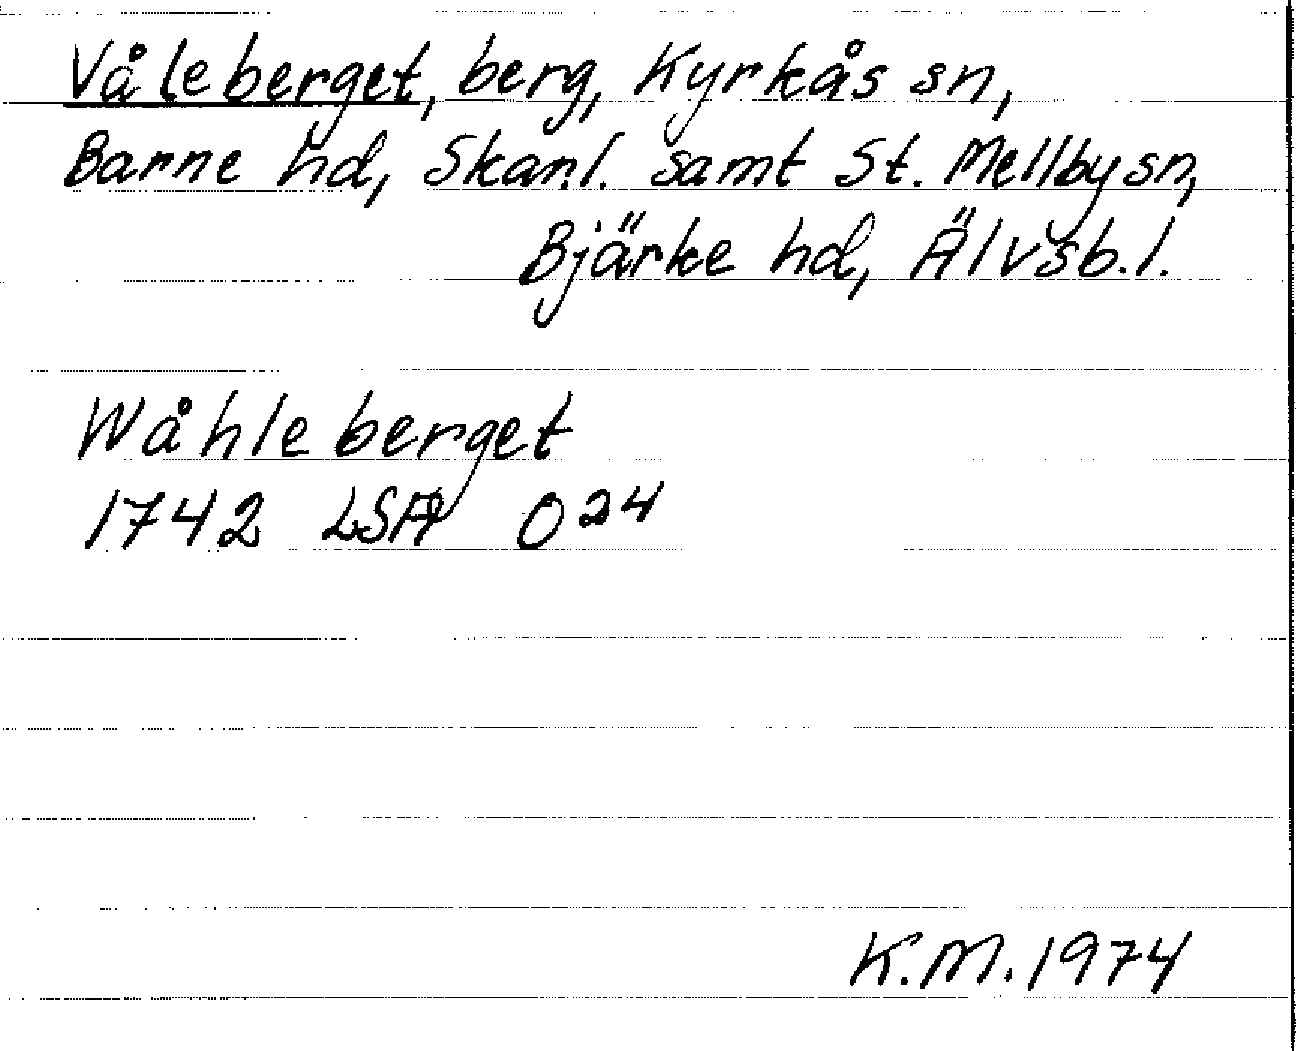 Våleberget, berg, Kyrkås sn,
Barne hd, Skar.l. samt St. Mellby sn,
Bjärke hd, Älvsb.l.
Wåhleberget
1742 LSA O24
K.M. 1974